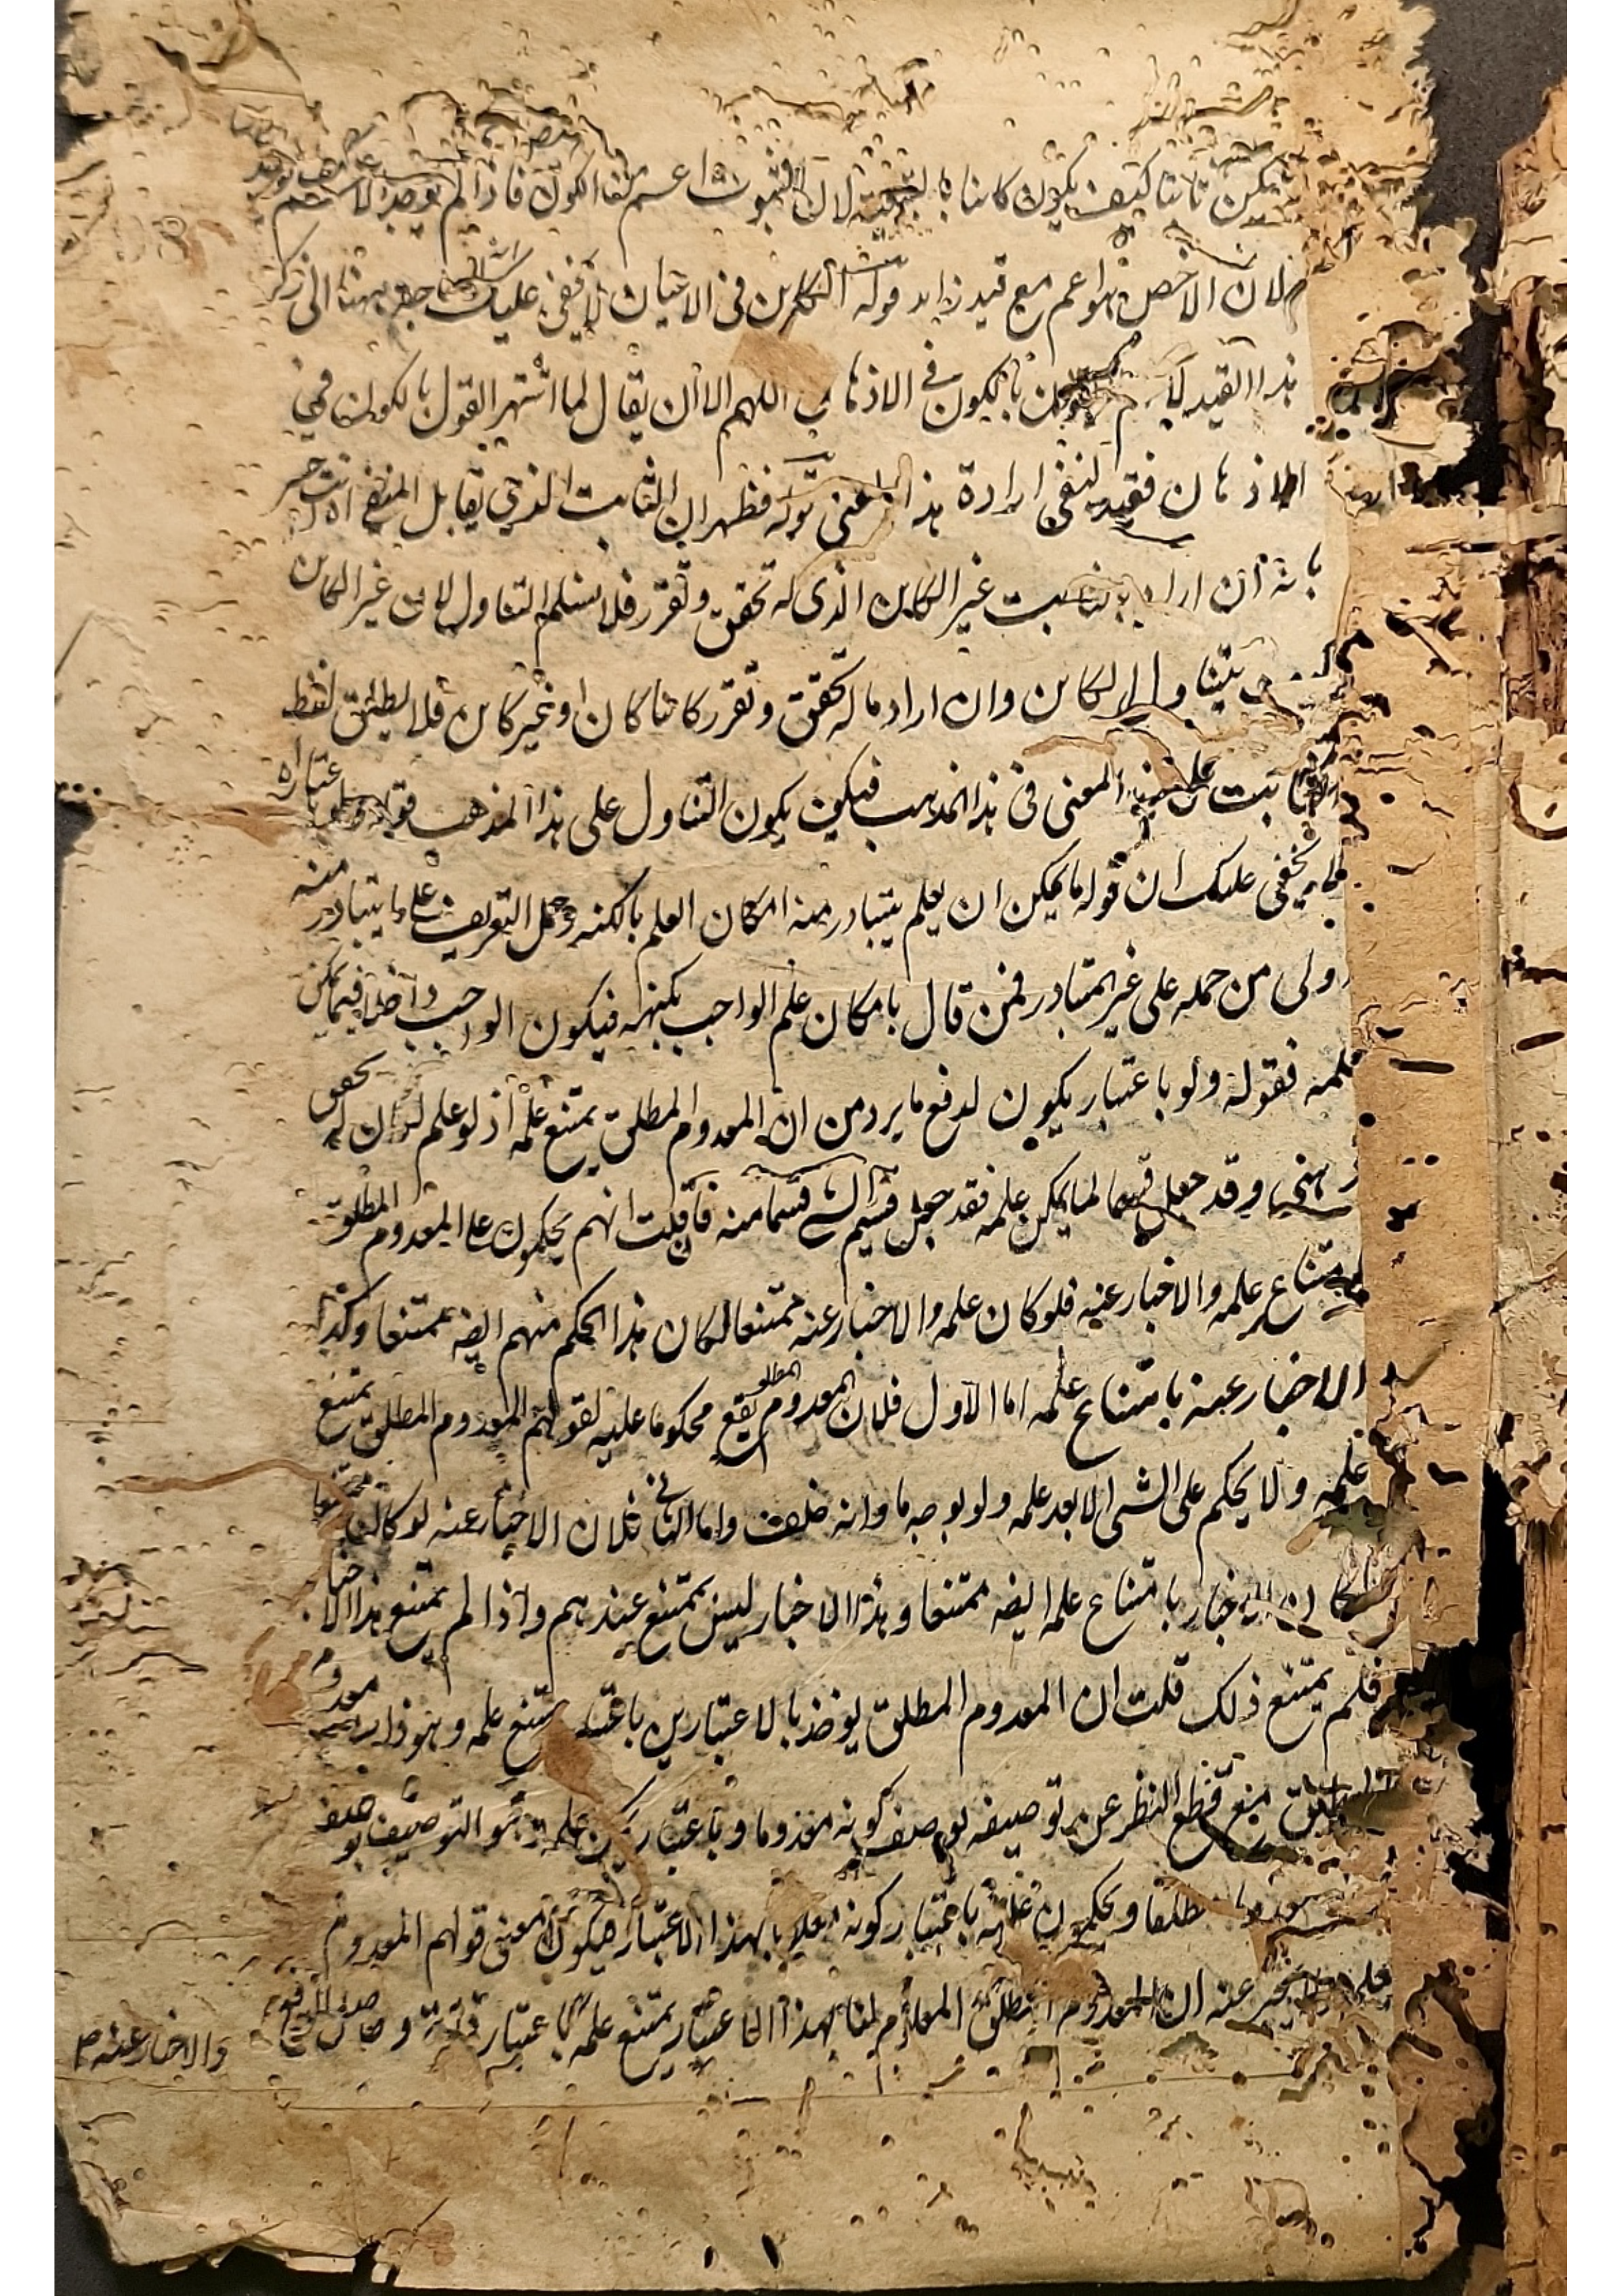 يكن ثابتا كيف يكون كائنا بالتبعية لان الثبوت اعم من الكون فاذا لم يوجد الاعم لم يوجد
لان الاخص هو اعم مع قيد زايد قوله الكاين فى الاعيان لا يخفى عليك حج بهنا الى ذكر
هذا القيد بالكون فى الاذهان اللهم الا ان يقال لما اشتهر القول بالكون فى
الاذهان فقيد لنفى ارادة هذا المعنى قوله فظهر ان الثابت الذى يقابل المنفى انت خبير
بانه ان اراد بالثابت غير الكاين الذى له تحقق وتقرر فلا نسلم التناول لان غير الكاين
يتناول الكاين وان اراد ما له تحقق وتقرر كائنا كان او غير كاين فلا يطلق لفظ
الثابت على المعنى فى هذا المذهب فكيف يكون التناول على هذا المذهب قوله ولو باعتبار اه
لا يخفى عليك ان قوله ما يمكن ان يعلم يتبادر منه امكان العلم بالكنه وحمل التعريف على ما يتبادر منه
اولى من حمله على غير المتبادر فمن قال بامكان علم الواجب بكنهه فيكون الواجب داخلا فيما يمكن
علمه فقوله ولو باعتبار يكون لدفع ما يرد من ان المعدوم المطلق يمتنع علمه اذ لو علم لكان له تحقق
ذهنى وقد جعل قسما لما يمكن علمه فقد جعل قسيم الشى قسما منه فان قلت انهم يحكمون على المعدوم المطلق
بامتناع علمه والاخبار عنه فلو كان علمه والاخبار عنه ممتنعا لكان هذا الحكم منهم ايضه ممتنعا وكذا
الاخبار عنه بامتناع علمه اما الاول فلان المعدوم المطلق يقع محكوما عليه لقولهم المعدوم المطلق يمتنع
علمه ولا يحكم على الشى الا بعد علمه ولو بوجه ما وانه خلف واما الثانى فلان الاخبار عنه لو كان ممتنعا
لكان الاخبار بامتناع علمه ايضه ممتنعا وهذا الاخبار ليس بممتنع عندهم واذا لم يمتنع هذا الاخبار
فلم يمتنع ذلك قلت ان المعدوم المطلق يوخذ بالاعتبارين باعتبار يمتنع علمه وهو ذات معدوم
المطلق مع قطع النظر عن توصيفه بوصف كونه معدوما وباعتبار يمكن علمه وهو التوصيف بوصف
معدوما مطلقا ويحكمون عليه باعتبار كونه معلوما بهذا الاعتبار فيكون معنى قولهم المعدوم
علمه ولا يخبر عنه ان المعدوم المطلق المعلوم لنا بهذا الاعتبار يمتنع علمه باعتبار ذاته وحاصل الدفع
والاخبار عنه ص